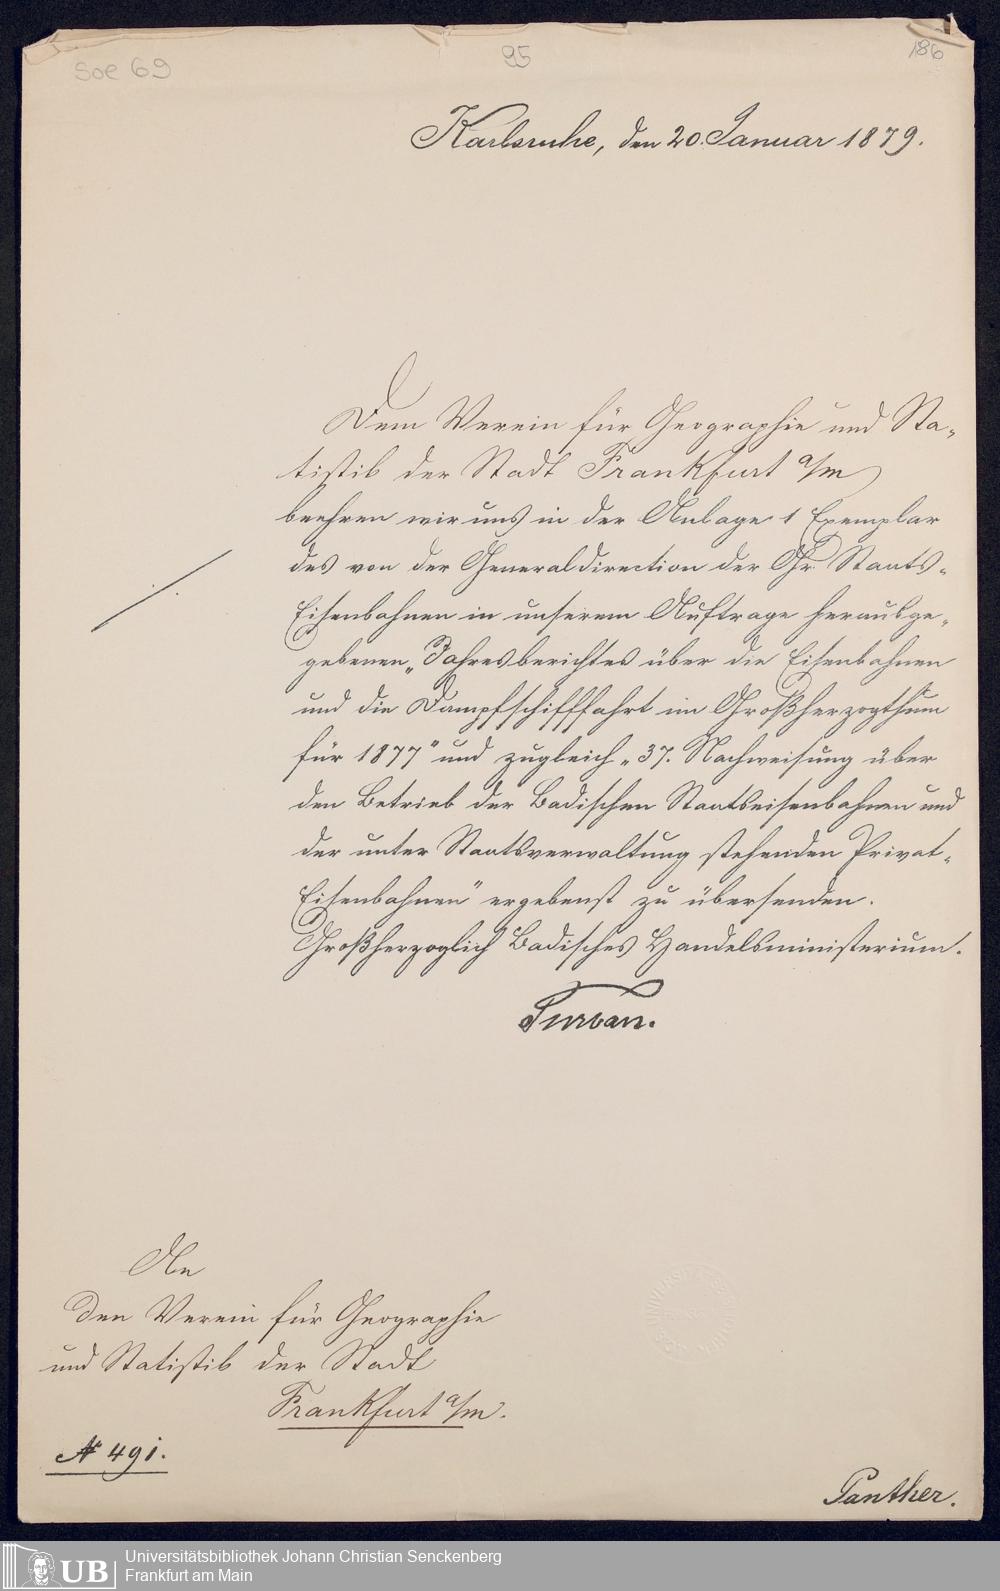 Soe 69
95
186
Karlsruhe, den 20. Januar 1879.
Dem Verein für Geographie und Sta-
tistik der Stadt Frankfurt a/m
beehren wir uns in der Anlage 1 Exemplar
des von der Generaldirection der Gr. Staats-
Eisenbahnen in unserem Auftrage herausge-
gebenen „Jahresberichtes über die Eisenbahnen
und die Dampfschifffahrt im Großherzogthum
für 1877" und zugleich „37. Nachweisung über
den Betrieb der Badischen Staatseisenbahnen und
der unter Staatsverwaltung stehenden Privat-
Eisenbahnen" ergebenst zu übersenden.
Großherzoglich Badisches Handelsministerium.
Turban.
An
den Verein für Geographie
und Statistik der Stadt
Frankfurt a/m.
N 491.
Panther.
UB
Universitätsbibliothek Johann Christian Senckenberg
Frankfurt am Main